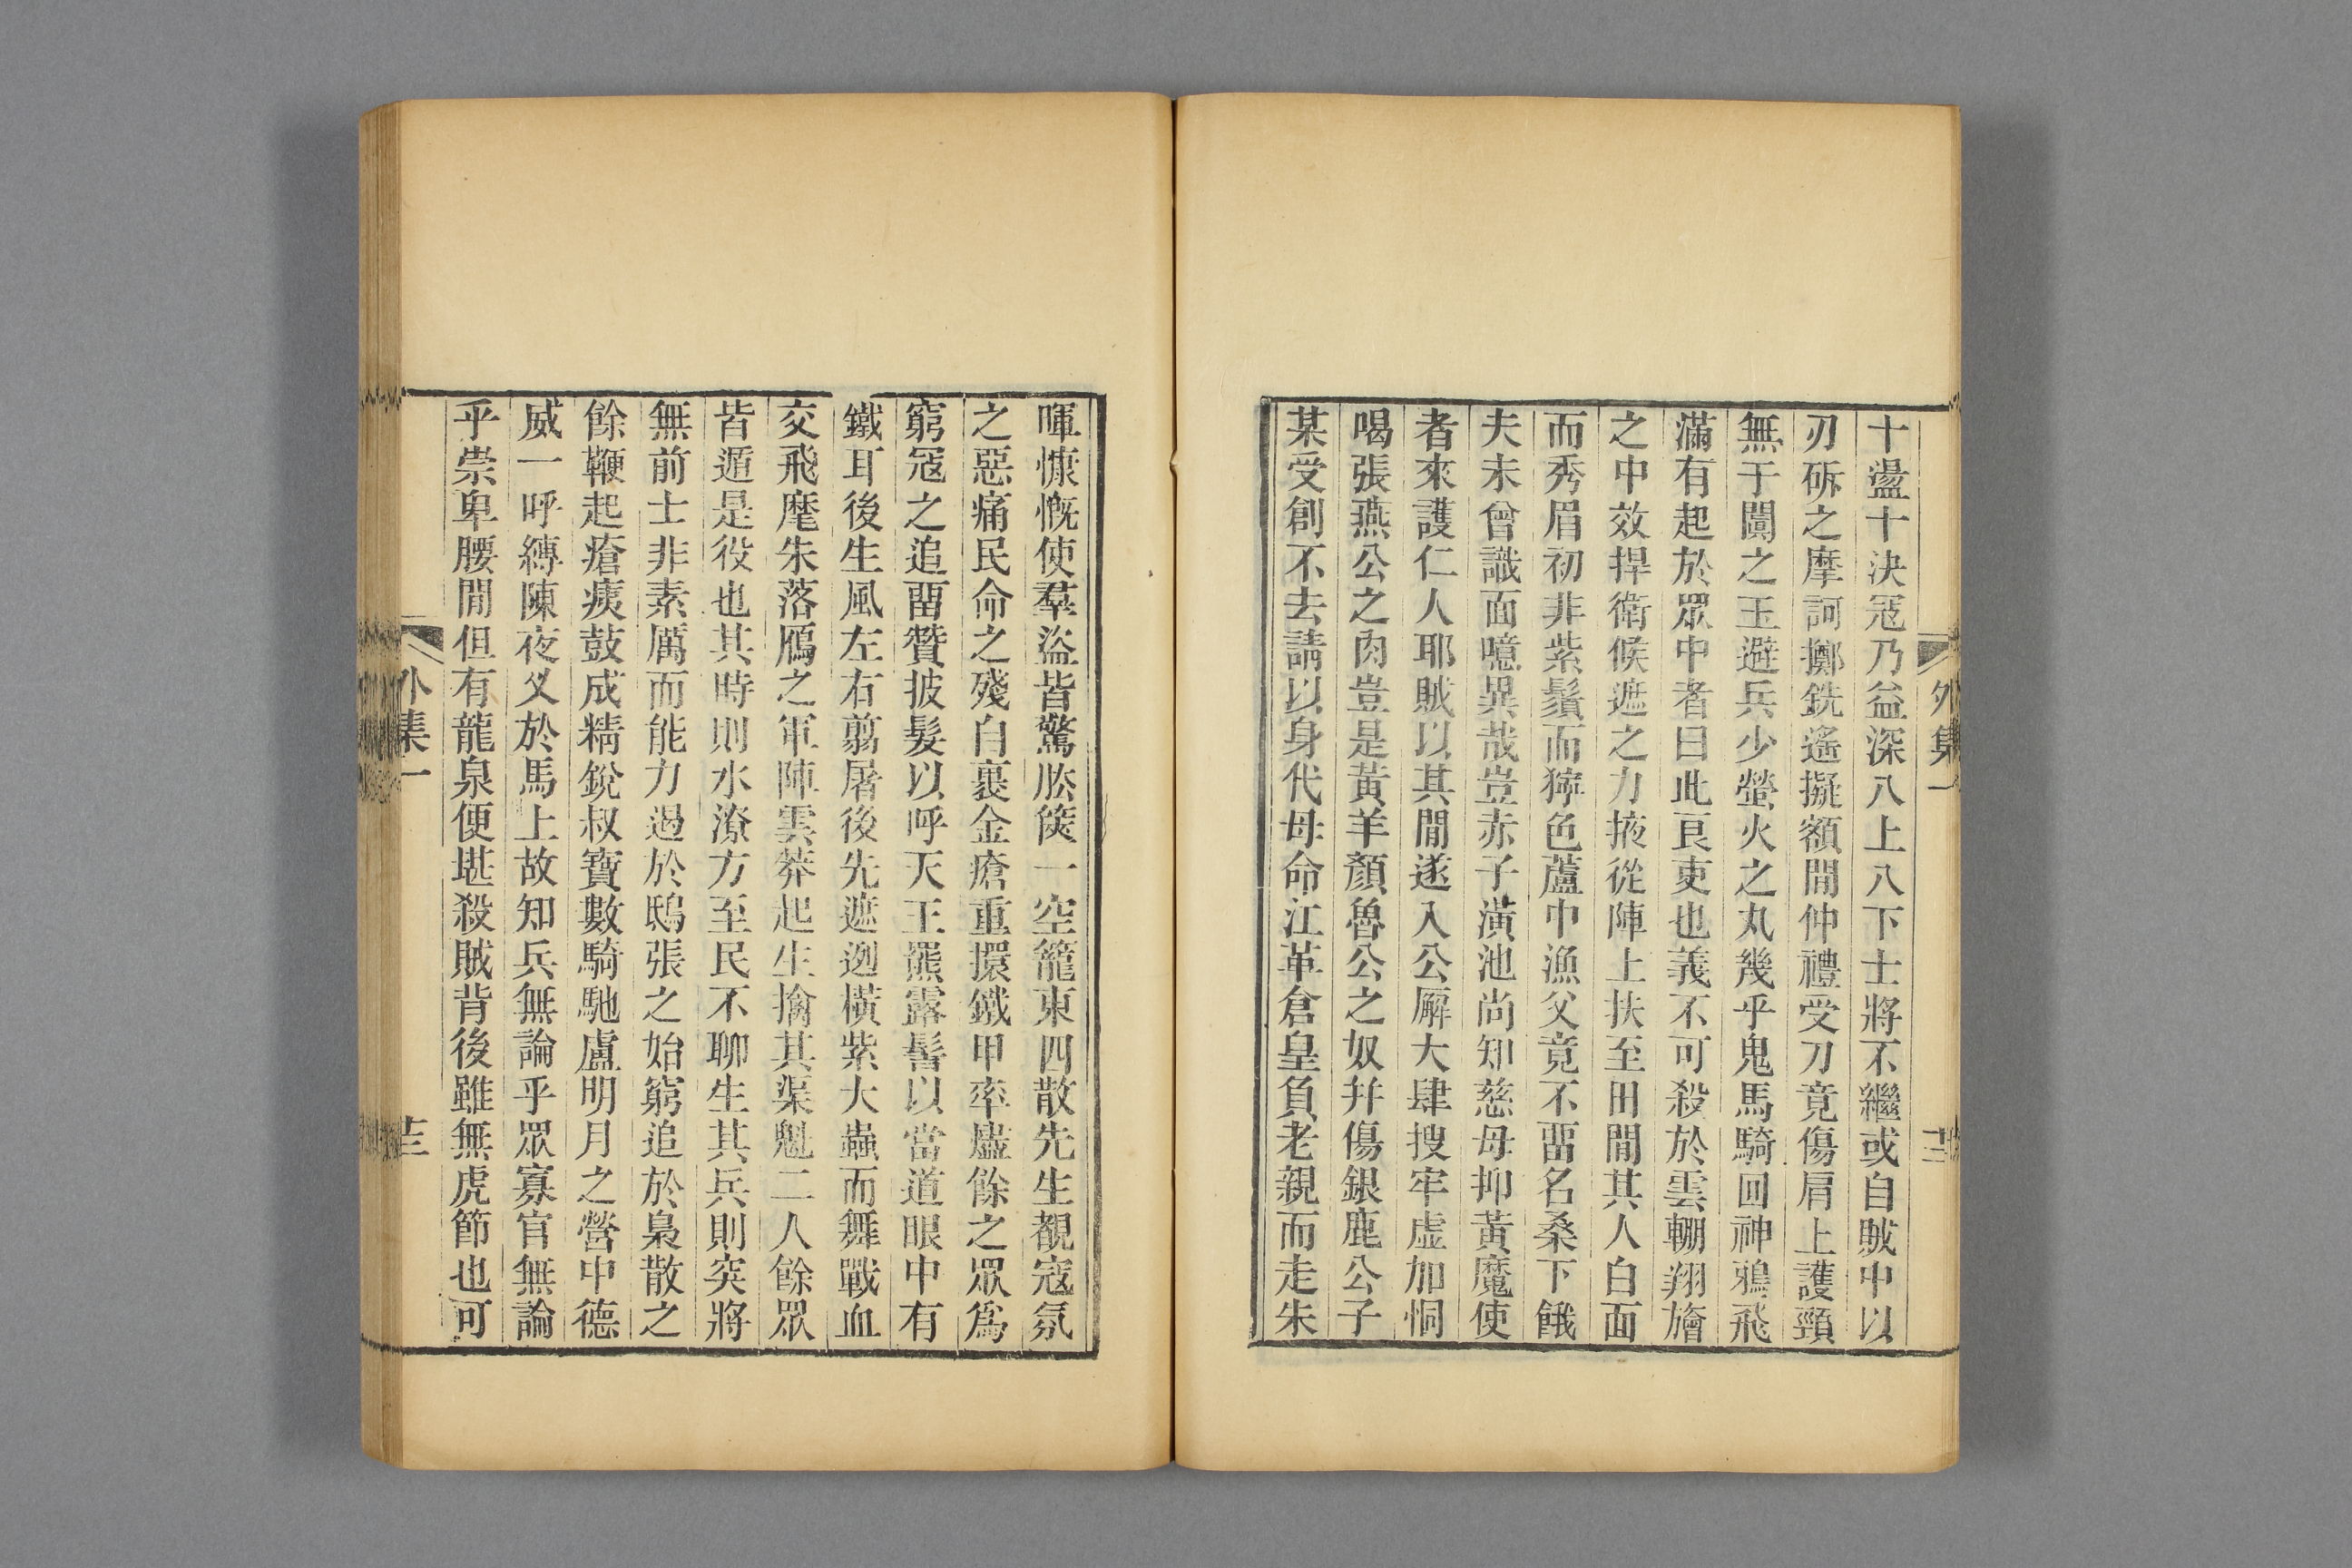 外集一
十盪十決冦乃益深八上八下士將不繼或自賊中以
刃斫之摩訶擲銑遙擬額間仲禮受刀竟傷肩上護頸
無于闐之玉避兵少螢火之丸幾乎鬼馬騎回神鴉飛
滿有起於眾中者曰此良吏也義不可殺於雲輣翔旝
之中效捍衛候遮之力掖從陣上扶至田間其人白面
而秀眉初非紫鬚而獰色蘆中漁父竟不畱名桑下餓
夫未曾識面噫異哉豈赤子潢池尚知慈母抑黃魔使
者來護仁人耶賊以其間遂入公廨大肆搜牢虛加恫
喝張燕公之肉豈是黃羊顏魯公之奴幷傷銀鹿公子
某受創不去請以身代母命江革倉皇負老親而走朱
暉慷慨使羣盜皆驚胠篋一空籠東四散先生覩寇氛
之惡痛民命之殘白裹金瘡重擐鐵甲率燼餘之眾爲
窮冦之追畱贊披髮以呼天王羆露髻以當道眼中有
鐵耳後生風左右翦屠後先遮迾橫紫大蟲而舞戰血
交飛麾朱落鴈之軍陣雲莽起生擒其渠魁二人餘眾
皆遁是役也其時則水潦方至民不聊生其兵則突將
無前士非素厲而能力遏於鴟張之始窮追於梟散之
餘鞭起瘡痍鼓成精銳叔寶數騎馳盧明月之營中德
威一呼縛陳夜叉於馬上故知兵無論乎眾寡官無論
乎崇卑腰間但有龍泉便堪殺賊背後雖無虎節也可
外集一